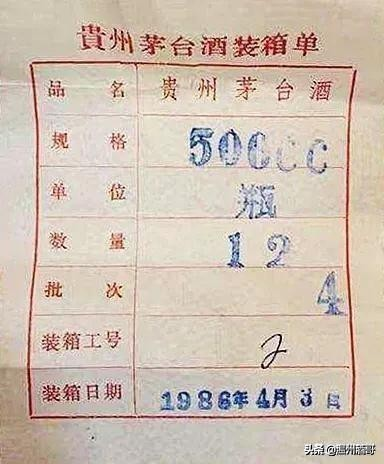 貴州茅台酒装箱单
品名 貴州茅台酒
规格 500CC
单位 瓶
数量 12
批次 4
装箱工号 2
装箱日期 1986年4月3日
头条 @温州酒哥